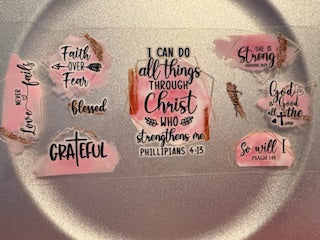 Love never fails
Faith
OVER
Fear
blessed
GRATEFUL
I CAN DO
all things
THROUGH
Christ
WHO
strengthens me
PHILLIPIANS 4:13
SHE IS
Strong
God
is Good
all the
time
So will I
PSALM 148